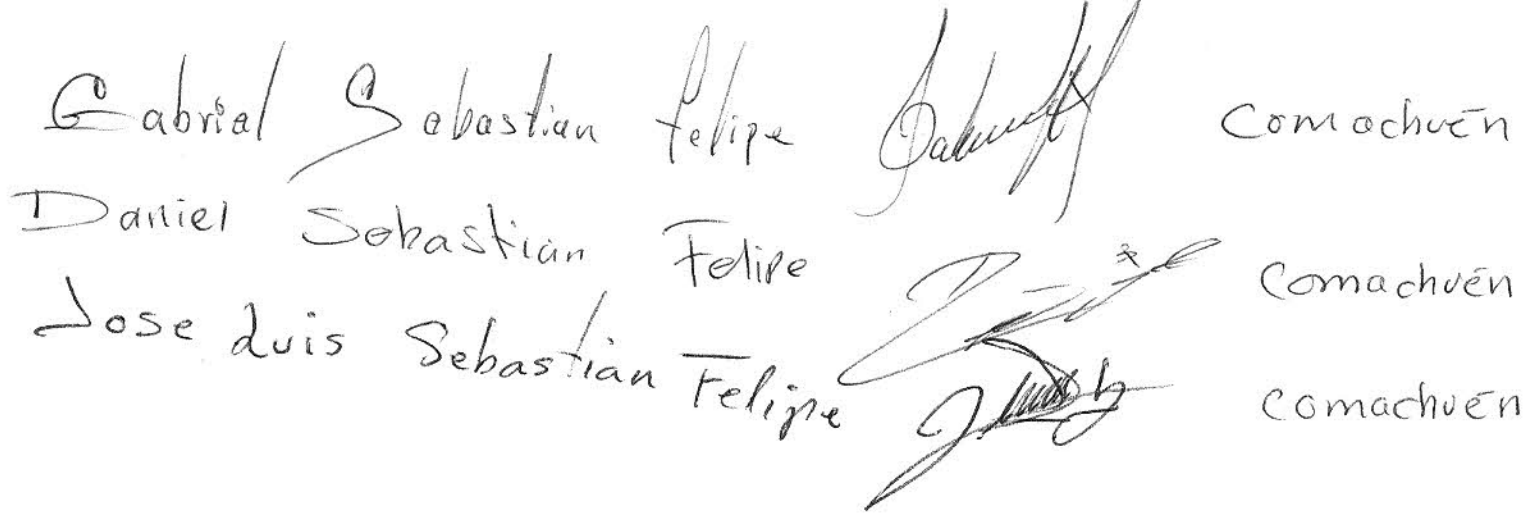 Gabriel Sebastian Felipe Comachuén
Daniel Sebastian Felipe Comachuén
Jose Luis Sebastian Felipe Comachuén